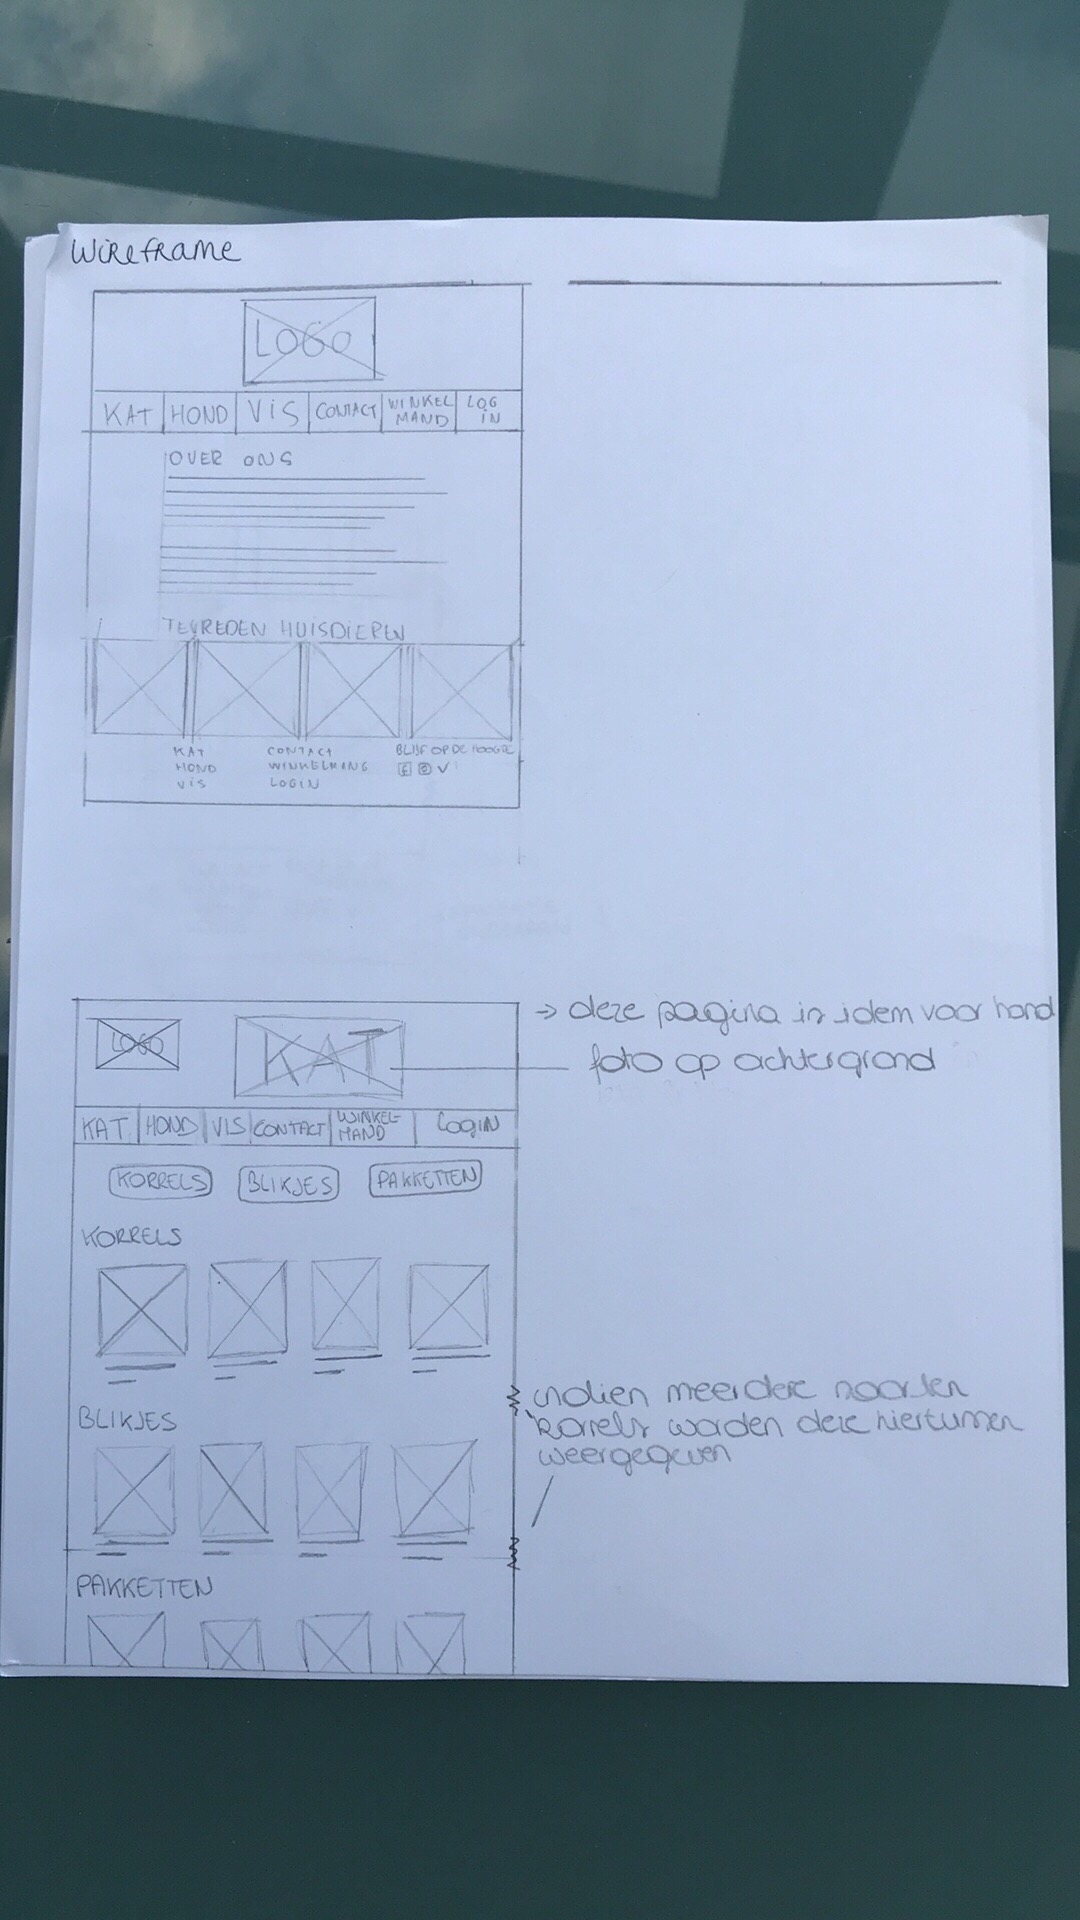 WIREFRAME
LOGO
KAT HOND VIS CONTACT WINKEL MAND LOG IN
OVER ONS
TEVREDEN HUISDIEREN
KAT CONTACT BLIJF OP DE HOOGTE
HOND WINKELMAND
VIS LOGIN
LOGO KAT
→ deze pagina is idem voor hond
foto op achtergrond
KAT HOND VIS CONTACT WINKEL-MAND LOGIN
KORRELS BLIKJES PAKKETTEN
KORRELS
indien meerdere soorten
korrels worden deze hiertussen
weergegeven
BLIKJES
PAKKETTEN